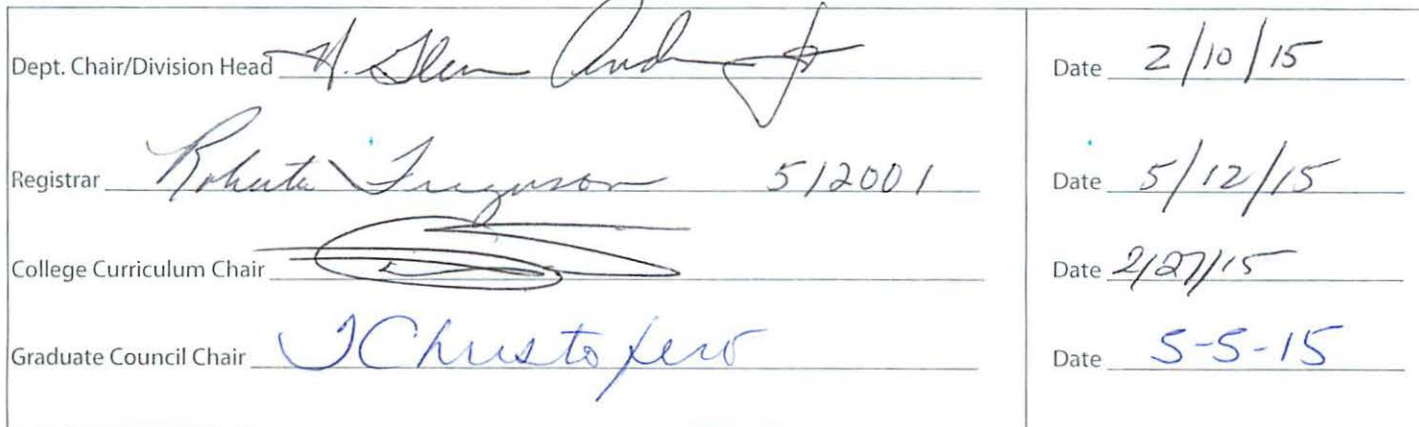 Dept. Chair/Division Head Date 2/10/15
Registrar Roberta Ferguson 512001 Date 5/12/15
College Curriculum Chair Date 2/27/15
Graduate Council Chair TChristofero Date 5-5-15